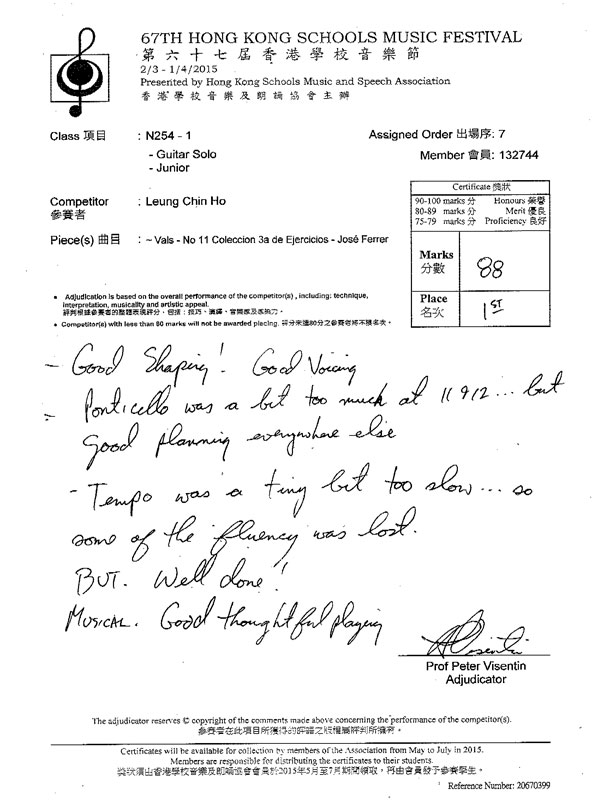 67TH HONG KONG SCHOOLS MUSIC FESTIVAL
第六十七屆香港學校音樂節
2/3 - 1/4/2015
Presented by Hong Kong Schools Music and Speech Association
香港學校音樂及朗誦協會主辦
Class 項目 : N254 - 1 Assigned Order 出場序: 7
- Guitar Solo Member 會員: 132744
- Junior
Competitor : Leung Chin Ho
參賽者
Piece(s) 曲目 : ~ Vals - No 11 Coleccion 3a de Ejercicios - José Ferrer
Certificate 獎狀
90-100 marks 分 Honours 榮譽
80-89 marks 分 Merit 優良
75-79 marks 分 Proficiency 良好
Marks 分數 88
Place 名次 1ST
• Adjudication is based on the overall performance of the competitor(s), including: technique,
interpretation, musicality and artistic appeal.
評判根據參賽者的整體表現評分，包括：技巧、演繹、音樂感及感染力。
• Competitor(s) with less than 80 marks will not be awarded placing. 評分未達80分之參賽者將不獲名次。
- Good Shaping! Good Voicing
- Ponticello was a bit too much at 11 9/2... but
good planning everywhere else
- Tempo was a tiny bit too slow... so
some of the fluency was lost.
BUT. Well done!
MUSICAL. Good thoughtful playing
Prof Peter Visentin
Adjudicator
The adjudicator reserves © copyright of the comments made above concerning the performance of the competitor(s).
參賽者在此項目所獲得的評語之版權屬評判所擁有。
Certificates will be available for collection by members of the Association from May to July in 2015.
Members are responsible for distributing the certificates to their students.
獎狀須由香港學校音樂及朗誦協會會員於2015年5月至7月期間領取，再由會員發予參賽學生。
Reference Number: 20670399